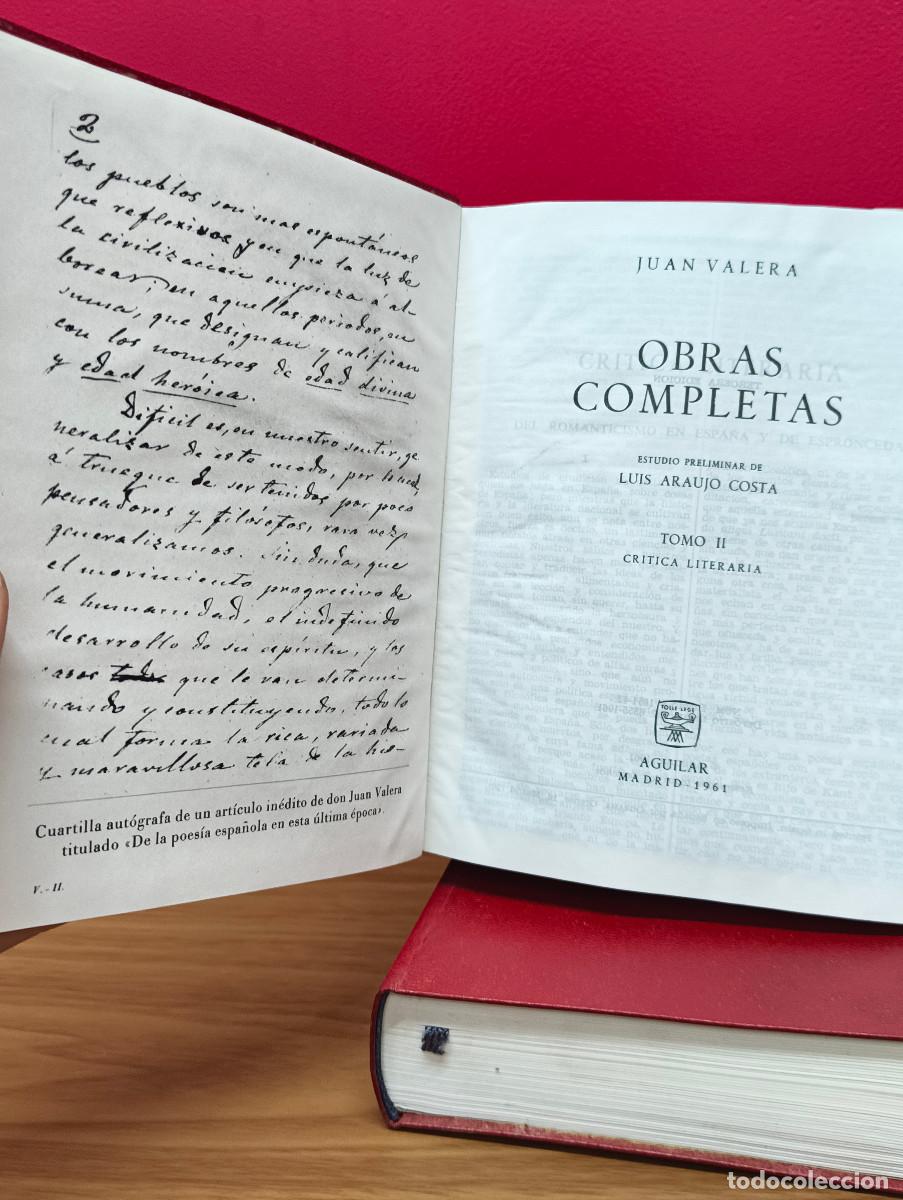 2
los pueblos son mas espontáneos
que reflexivos y en que la luz de
la civilizacion empieza á al-
borear; en aquellos periodos, en
suma, que designan y califican
con los nombres de edad divina
y edad heróica.
Dificil es, en nuestro sentir, ge
neralizar de este modo, por lo cual,
á trueque de ser tenidos por poco
pensadores y filósofos, rara vez
generalizamos. Sin duda, que
el movimiento progresivo de
la humanidad, el indefinido
desarrollo de su espíritu, y los
casos todos que le van determi-
nando y constituyendo, todo lo
cual forma la rica, variada
y maravillosa tela de la his-
Cuartilla autógrafa de un artículo inédito de don Juan Valera
titulado «De la poesía española en esta última época».
V.-II.
JUAN VALERA
OBRAS
COMPLETAS
ESTUDIO PRELIMINAR DE
LUIS ARAUJO COSTA
TOMO II
CRITICA LITERARIA
TOLLE LEGE
AGUILAR
MADRID-1961
todocoleccion